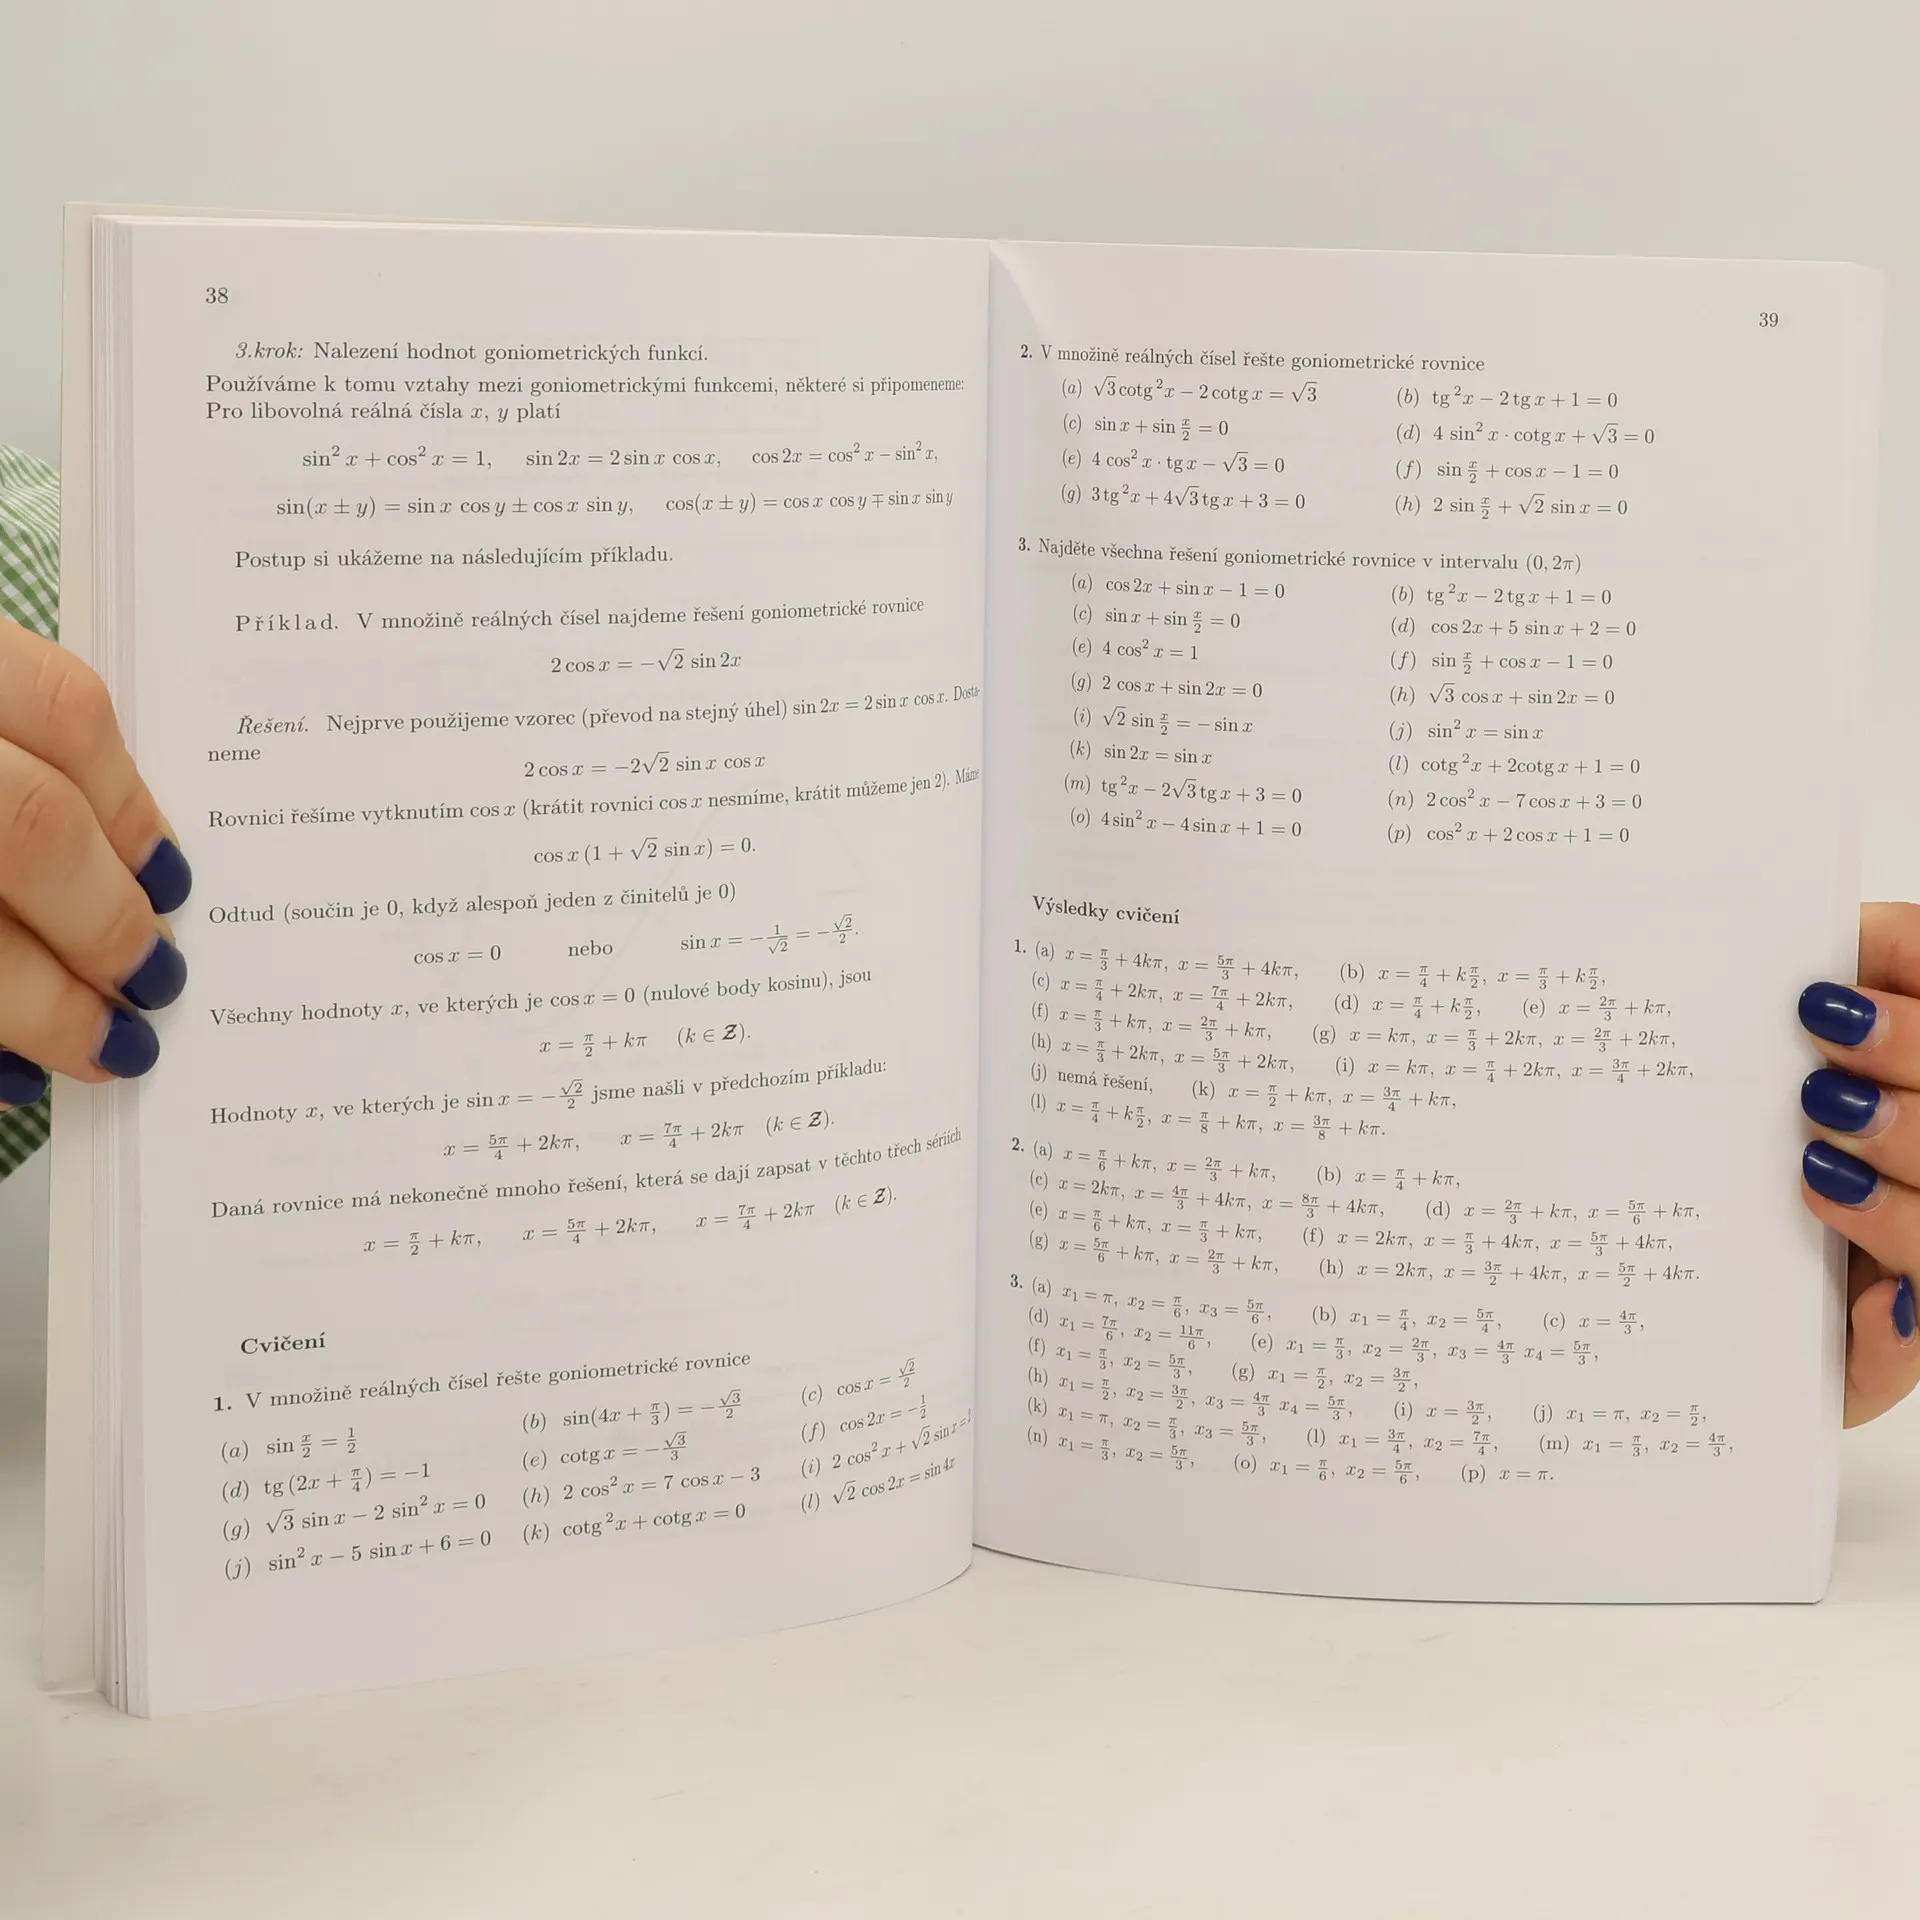 38
3.krok: Nalezení hodnot goniometrických funkcí.
Používáme k tomu vztahy mezi goniometrickými funkcemi, některé si připomeneme:
Pro libovolná reálná čísla x, y platí
sin² x + cos² x = 1, sin 2x = 2 sin x cos x, cos 2x = cos² x − sin² x,
sin(x ± y) = sin x cos y ± cos x sin y, cos(x ± y) = cos x cos y ∓ sin x sin y
Postup si ukážeme na následujícím příkladu.
Příklad. V množině reálných čísel najdeme řešení goniometrické rovnice
2 cos x = −√2 sin 2x
Řešení. Nejprve použijeme vzorec (převod na stejný úhel) sin 2x = 2 sin x cos x. Dosta-
neme
2 cos x = −2√2 sin x cos x
Rovnici řešíme vytknutím cos x (krátit rovnici cos x nesmíme, krátit můžeme jen 2). Máme
cos x (1 + √2 sin x) = 0.
Odtud (součin je 0, když alespoň jeden z činitelů je 0)
cos x = 0 nebo sin x = −1/√2 = −√2/2.
Všechny hodnoty x, ve kterých je cos x = 0 (nulové body kosinu), jsou
x = π/2 + kπ (k ∈ Z).
Hodnoty x, ve kterých je sin x = −√2/2 jsme našli v předchozím příkladu:
x = 5π/4 + 2kπ, x = 7π/4 + 2kπ (k ∈ Z).
Daná rovnice má nekonečně mnoho řešení, která se dají zapsat v těchto třech sériích
x = π/2 + kπ, x = 5π/4 + 2kπ, x = 7π/4 + 2kπ (k ∈ Z).
Cvičení
1. V množině reálných čísel řešte goniometrické rovnice
(a) sin x/2 = 1/2 (b) sin(4x + π/3) = −√3/2 (c) cos x = √2/2
(d) tg (2x + π/4) = −1 (e) cotg x = −√3/3 (f) cos 2x = −1/2
(g) √3 sin x − 2 sin² x = 0 (h) 2 cos² x = 7 cos x − 3 (i) 2 cos² x + √2 sin x =
(j) sin² x − 5 sin x + 6 = 0 (k) cotg² x + cotg x = 0 (l) √2 cos 2x = sin 4x
39
2. V množině reálných čísel řešte goniometrické rovnice
(a) √3 cotg² x − 2 cotg x = √3 (b) tg² x − 2 tg x + 1 = 0
(c) sin x + sin x/2 = 0 (d) 4 sin² x · cotg x + √3 = 0
(e) 4 cos² x · tg x − √3 = 0 (f) sin x/2 + cos x − 1 = 0
(g) 3 tg² x + 4√3 tg x + 3 = 0 (h) 2 sin x/2 + √2 sin x = 0
3. Najděte všechna řešení goniometrické rovnice v intervalu (0, 2π)
(a) cos 2x + sin x − 1 = 0 (b) tg² x − 2 tg x + 1 = 0
(c) sin x + sin x/2 = 0 (d) cos 2x + 5 sin x + 2 = 0
(e) 4 cos² x = 1 (f) sin x/2 + cos x − 1 = 0
(g) 2 cos x + sin 2x = 0 (h) √3 cos x + sin 2x = 0
(i) √2 sin x/2 = − sin x (j) sin² x = sin x
(k) sin 2x = sin x (l) cotg² x + 2cotg x + 1 = 0
(m) tg² x − 2√3 tg x + 3 = 0 (n) 2 cos² x − 7 cos x + 3 = 0
(o) 4 sin² x − 4 sin x + 1 = 0 (p) cos² x + 2 cos x + 1 = 0
Výsledky cvičení
1. (a) x = π/3 + 4kπ, x = 5π/3 + 4kπ, (b) x = π/4 + kπ/2, x = π/3 + kπ/2,
(c) x = π/4 + 2kπ, x = 7π/4 + 2kπ, (d) x = π/4 + kπ/2, (e) x = 2π/3 + kπ,
(f) x = π/3 + kπ, x = 2π/3 + kπ, (g) x = kπ, x = π/3 + 2kπ, x = 2π/3 + 2kπ,
(h) x = π/3 + 2kπ, x = 5π/3 + 2kπ, (i) x = kπ, x = π/4 + 2kπ, x = 3π/4 + 2kπ,
(j) nemá řešení, (k) x = π/2 + kπ, x = 3π/4 + kπ,
(l) x = π/4 + kπ/2, x = π/8 + kπ, x = 3π/8 + kπ.
2. (a) x = π/6 + kπ, x = 2π/3 + kπ, (b) x = π/4 + kπ,
(c) x = 2kπ, x = 4π/3 + 4kπ, x = 8π/3 + 4kπ, (d) x = 2π/3 + kπ, x = 5π/6 + kπ,
(e) x = π/6 + kπ, x = π/3 + kπ, (f) x = 2kπ, x = π/3 + 4kπ, x = 5π/3 + 4kπ,
(g) x = 5π/6 + kπ, x = 2π/3 + kπ, (h) x = 2kπ, x = 3π/2 + 4kπ, x = 5π/2 + 4kπ.
3. (a) x₁ = π, x₂ = π/6, x₃ = 5π/6, (b) x₁ = π/4, x₂ = 5π/4, (c) x = 4π/3,
(d) x₁ = 7π/6, x₂ = 11π/6, (e) x₁ = π/3, x₂ = 2π/3, x₃ = 4π/3 x₄ = 5π/3,
(f) x₁ = π/3, x₂ = 5π/3, (g) x₁ = π/2, x₂ = 3π/2,
(h) x₁ = π/2, x₂ = 3π/2, x₃ = 4π/3 x₄ = 5π/3, (i) x = 3π/2, (j) x₁ = π, x₂ = π/2,
(k) x₁ = π, x₂ = π/3, x₃ = 5π/3, (l) x₁ = 3π/4, x₂ = 7π/4, (m) x₁ = π/3, x₂ = 4π/3,
(n) x₁ = π/3, x₂ = 5π/3, (o) x₁ = π/6, x₂ = 5π/6, (p) x = π.